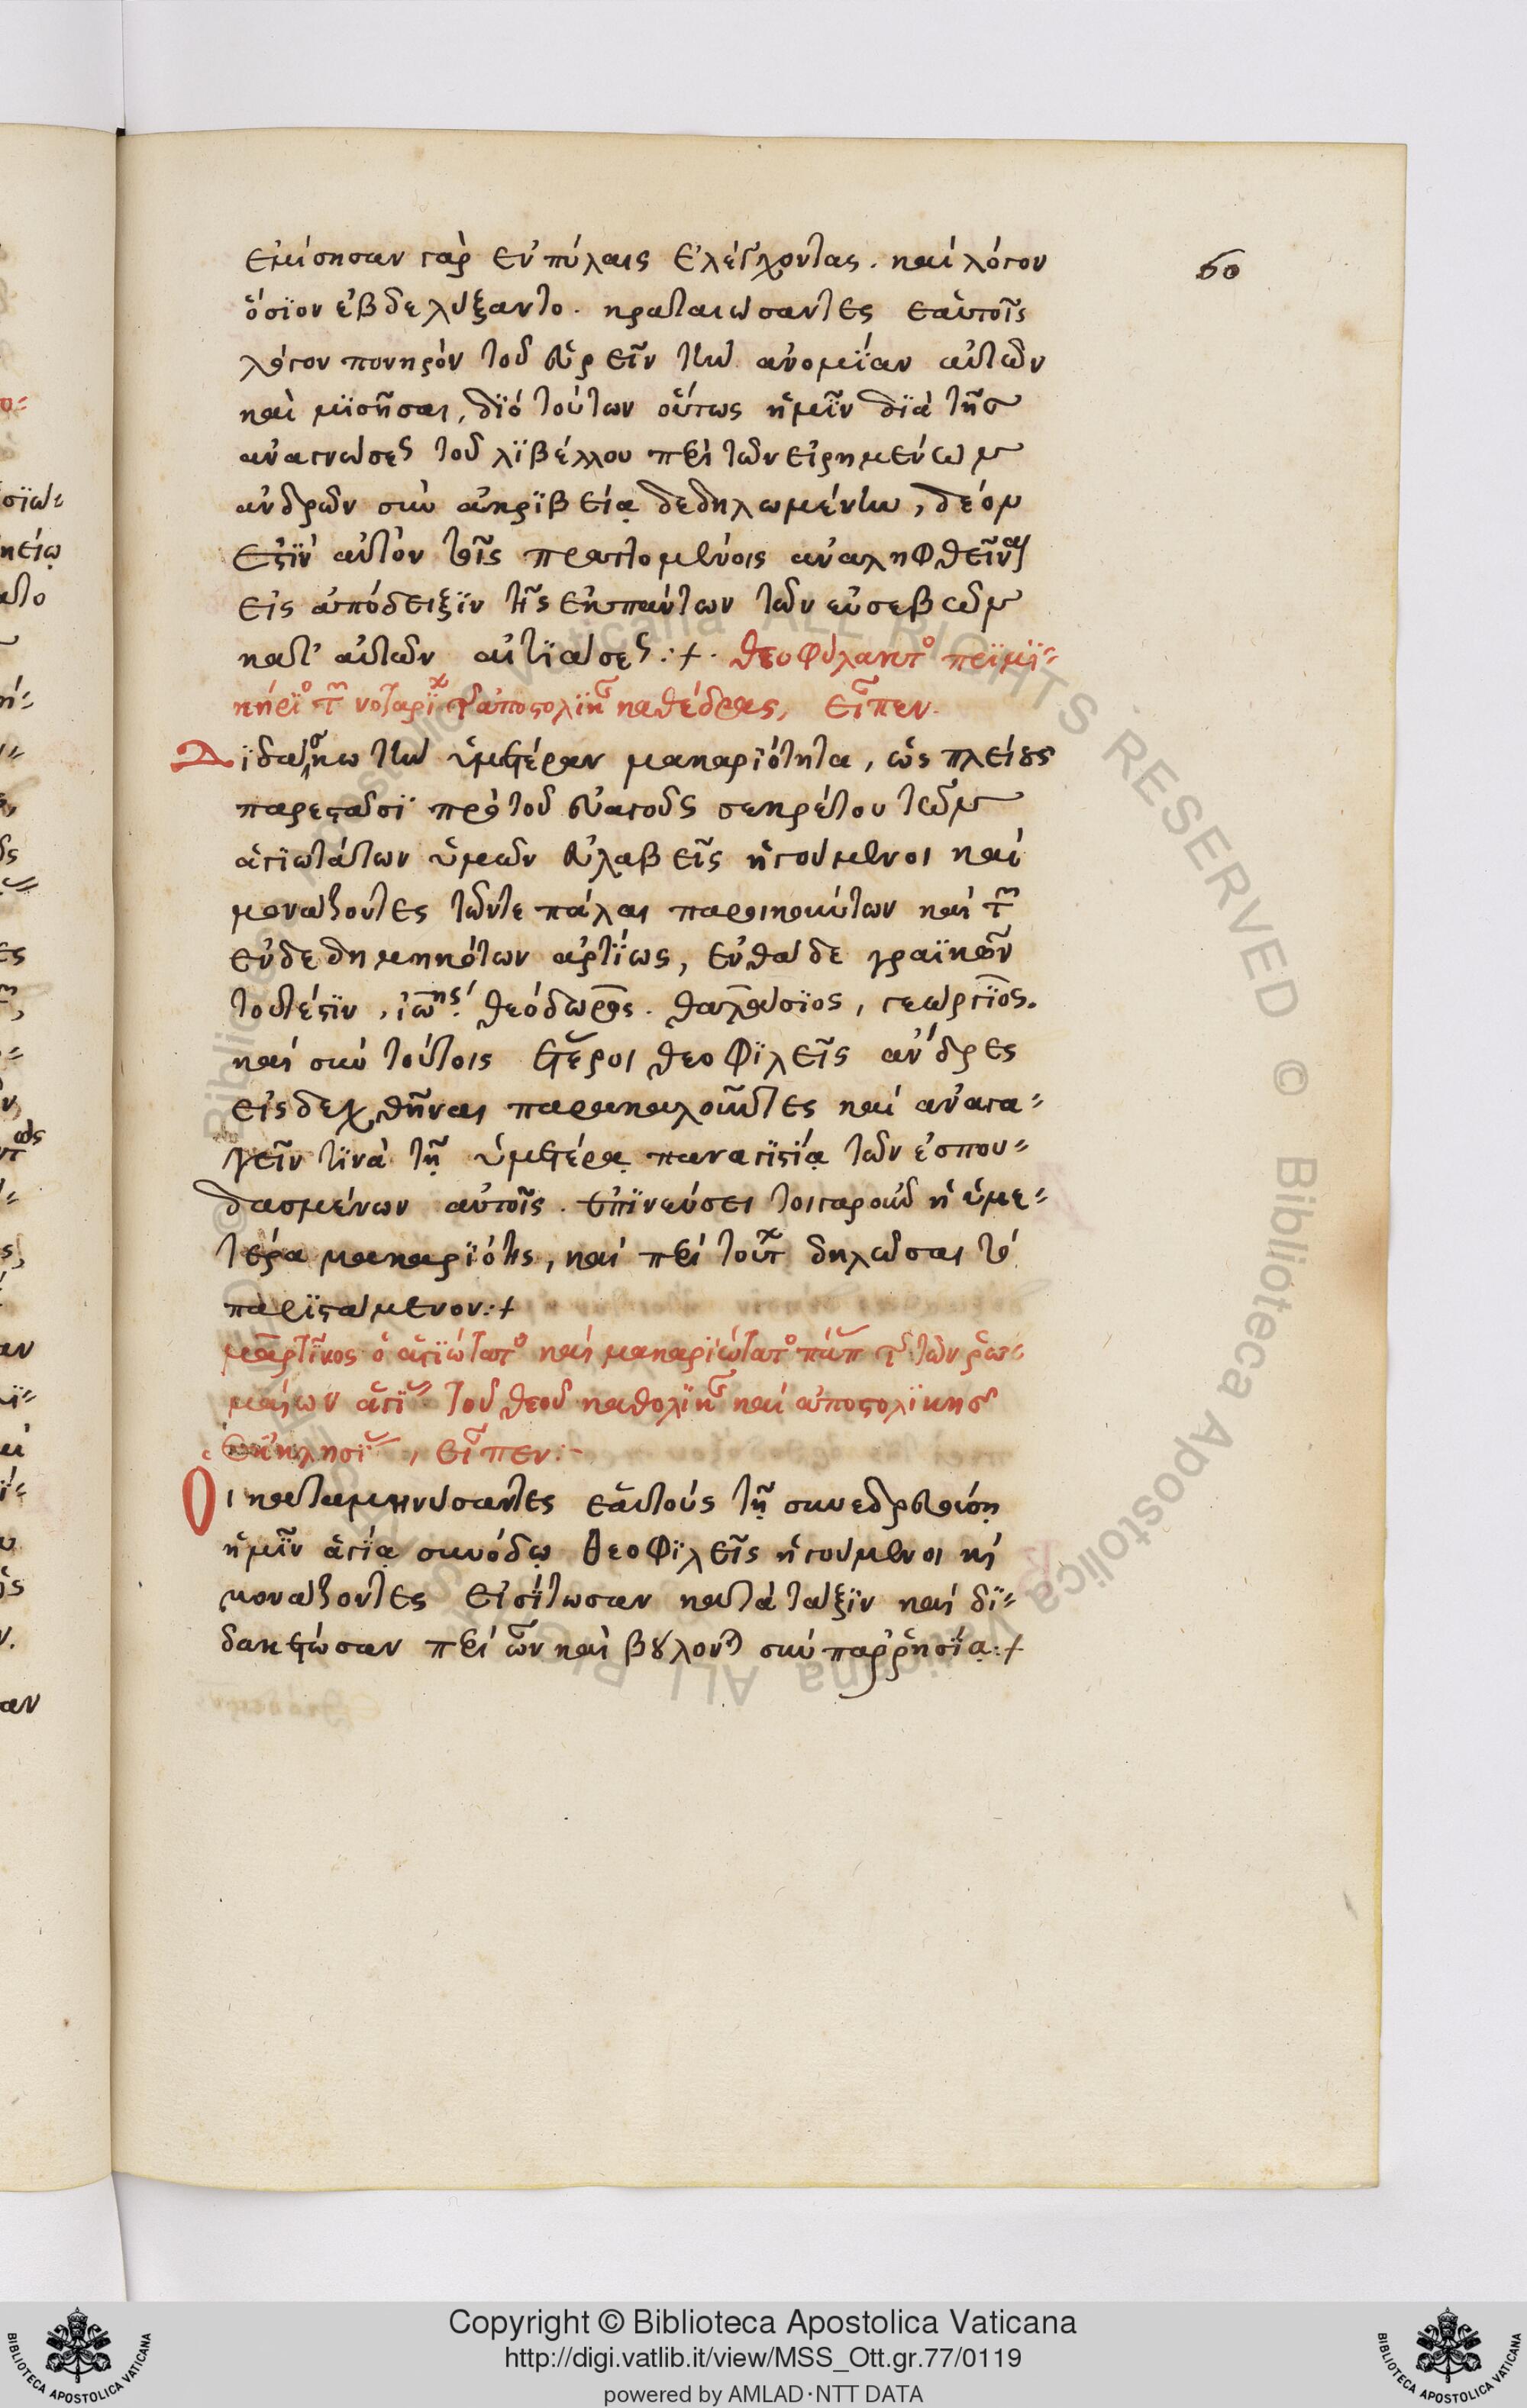 ἐμίσησαν γὰρ ἐν πύλαις ἐλέγχοντας. καὶ λόγον
60
ὅσϊον ἐβδελύξαντο. κραταιώσαντες ἑαυτοῖς
λόγον πονηρὸν τοῦ εὑρεῖν τὴν ἀνομΐαν αὐτῶν
καὶ μϊσῆσαι, δϊὸ τούτων οὕτως ἡμῖν δϊὰ τῆς
ἀναγνώσεως τοῦ λϊβέλλου περὶ τῶν εἰρημένων
ἀνδρῶν σὺν ἀκρϊβείᾳ δεδηλωμένων, δέον
ἐστϊν αὐτὸν τοῖς πραττομένοις ἀναληφθεῖναι
εἰς ἀπόδειξϊν τῆς ἐκ πάντων τῶν εὐσεβῶν
κατ' αὐτῶν αἰτϊάσεως:+. Θεοφύλακτο πριμϊ=
κήριο τ νοταρϊ τ ἀποστολικ καθέδρας, εἶπεν.
Διδάσκω τὴν ὑμετέραν μακαρϊότητα, ὡς πλείους
παρεστᾶσϊ πρὸ τοῦ εὐαγοῦς σεκρέτου τῶν
ἁγϊωτάτων ὑμῶν εὐλαβεῖς ἡγούμενοι καὶ
μονάζοντες τῶν τε πάλαι παροικούντων καὶ τ
ἐνδεδημηκότων ἀρτΐως, ἐνθάδε γραϊκῶν
τουτέστϊν, ἰωης. θεόδωρος. θαλάσϊος, γεώργϊος.
καὶ σὺν τούτοις ἕτεροι θεοφϊλεῖς ἄνδρες
εἰσδεχθῆναι παρακαλοῦντες καὶ ἀναγα=
γεῖν τϊνὰ τῇ ὑμετέρᾳ παναγϊστΐᾳ τῶν ἐσπου=
δασμένων αὐτοῖς. ἐπϊνεύσει τοιγαροῦν ἡ ὑμε=
τέρα μακαρϊότης, καὶ περὶ τούτ δηλῶσαι τὸ
παρϊστάμενον:+
μαρτῖνος ὁ ἁγϊώτατο καὶ μακαρϊώτατο πάπ τ τῶν ῥω
μαίων ἁγϊ τοῦ θεοῦ καθολικ καὶ ἀποστολϊκῆς
ἐκκλησϊ, εἶπεν:-
Οἱ καταμηνύσαντες ἑαυτοὺς τῇ συνεδρευούσῃ
ἡμῖν ἁγΐᾳ συνόδῳ θεοφϊλεῖς ἡγούμενοι κὶ
μονάζοντες εἰσΐτωσαν κατὰ τάξϊν καὶ δϊ=
δασκέτωσαν περὶ ὧν καὶ βούλονται σὺν παῤῥησΐᾳ:+
Copyright © Biblioteca Apostolica Vaticana
http://digi.vatlib.it/view/MSS_Ott.gr.77/0119
powered by AMLAD·NTT DATA